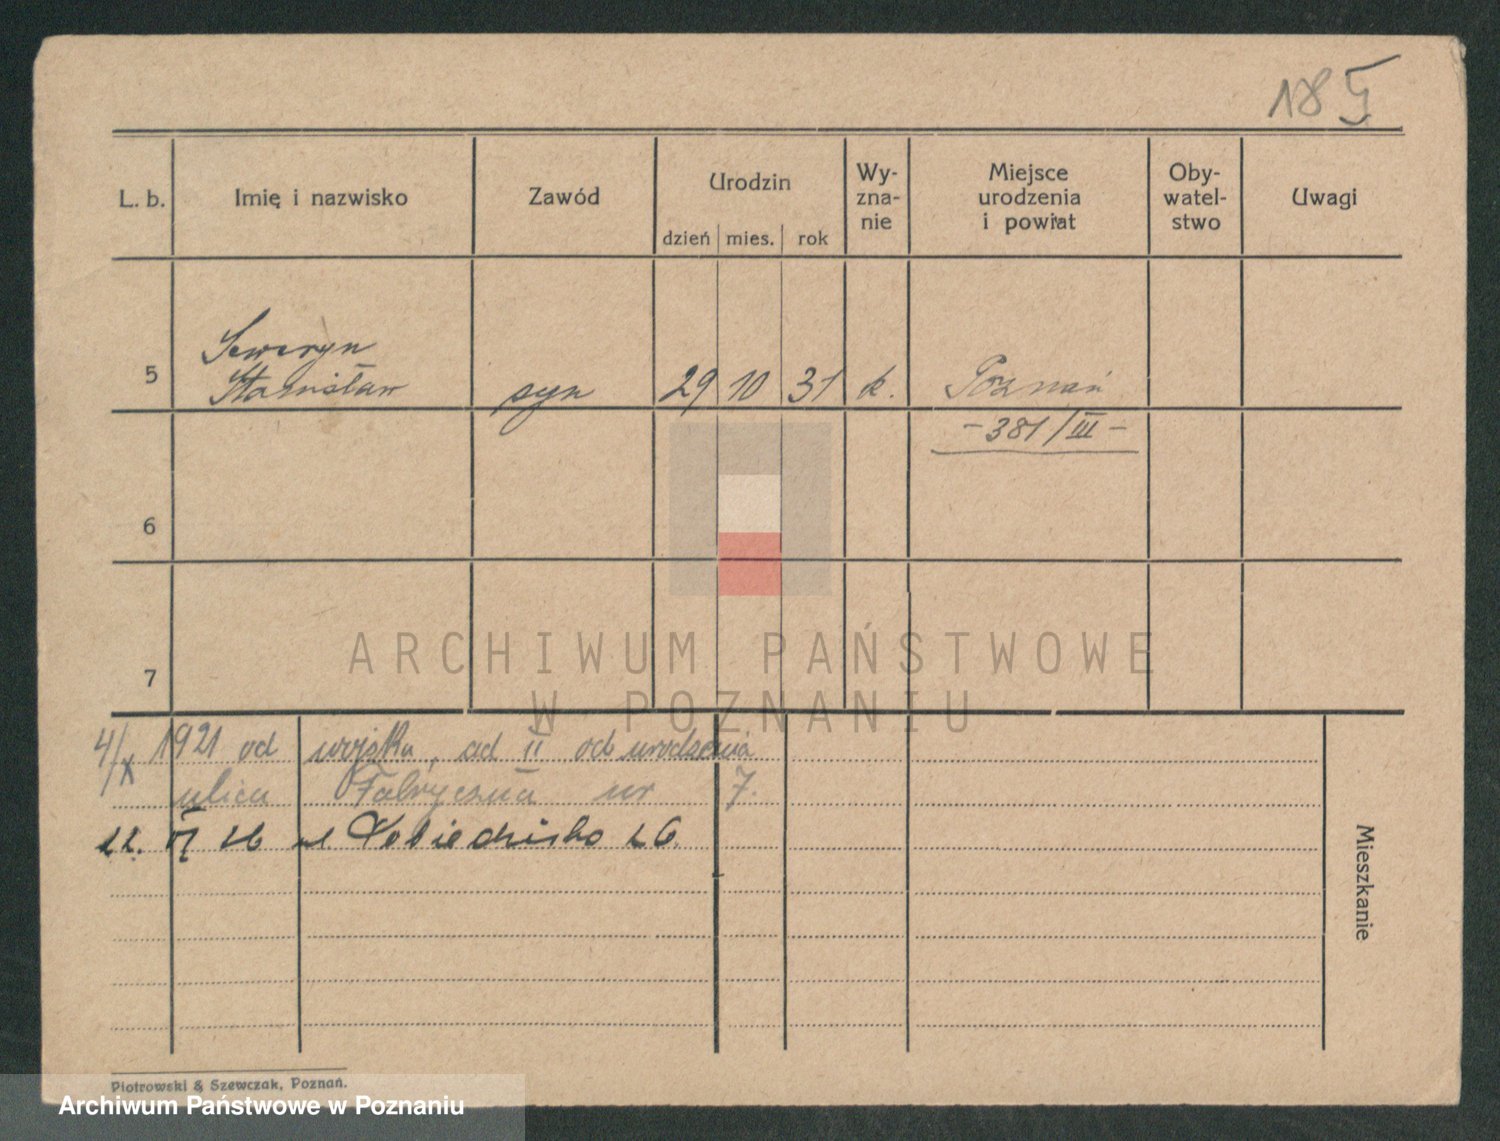 185
L. b.
Imię i nazwisko
Zawód
Urodzin
dzień mies. rok
Wy-
zna-
nie
Miejsce
urodzenia
i powiat
Oby-
watel-
stwo
Uwagi
5 Seweryn
Stanisław syn 29 10 31 k. Poznań
- 381/III -
6
7
ARCHIWUM PAŃSTWOWE
W POZNANIU
4/X 1921 od wojska, ad II od urodzenia
ulica Fabryczna nr 7.
22. VI 26 ul 26.
Mieszkanie
Piotrowski & Szewczak, Poznań.
Archiwum Państwowe w Poznaniu